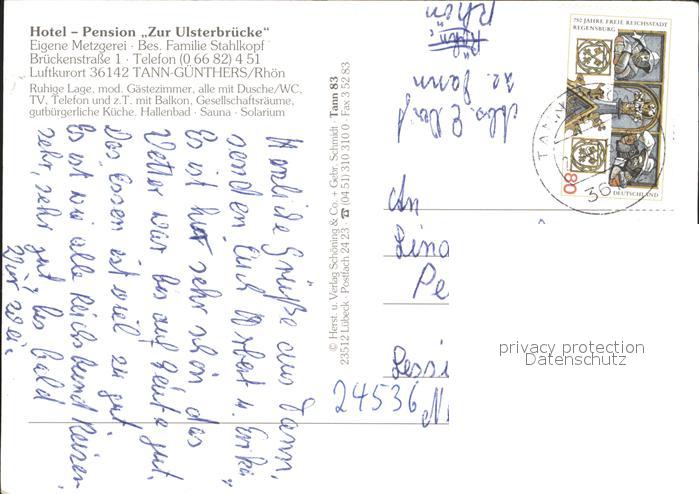 Hotel – Pension „Zur Ulsterbrücke“
Eigene Metzgerei · Bes. Familie Stahlkopf
Brückenstraße 1 · Telefon (0 66 82) 4 51
Luftkurort 36142 TANN-GÜNTHERS/Rhön
Ruhige Lage, mod. Gästezimmer, alle mit Dusche/WC,
TV, Telefon und z.T. mit Balkon, Gesellschaftsräume,
gutbürgerliche Küche. Hallenbad · Sauna · Solarium
Herzliche Grüße aus Tann,
senden Euch Norbert u. Erika,
Es ist hier sehr schön das
Wetter war bis auf heute gut.
Das Essen ist viel zu gut
Es ist wie alle Reichsbund Reisen
sehr, sehr gut bis bald
Wir zwei.
© Herst. u. Verlag Schöning & Co. + Gebr. Schmidt · Tann 83
23512 Lübeck · Postfach 24 23 · ☎ (04 51) 310 310 0 · Fax 3 52 83
Abs.
Tann
Rhön
750 JAHRE FREIE REICHSSTADT
REGENSBURG
80
DEUTSCHLAND
TANN
36
An
Lina
Pe
Lessi
24536 N
privacy protection
Datenschutz